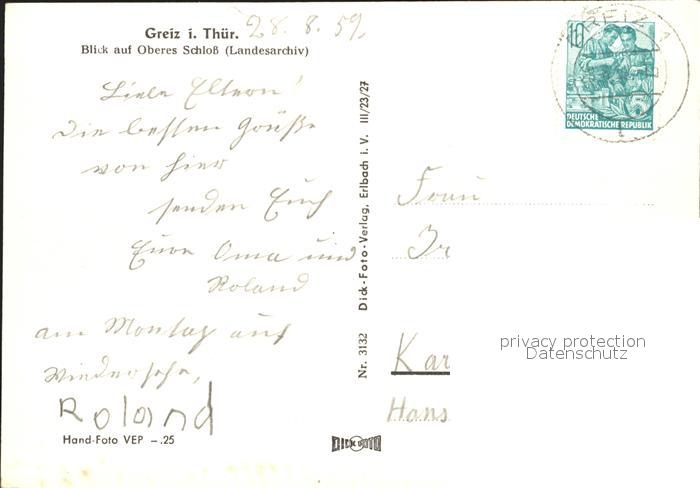 Greiz i. Thür. 28. 8. 59.
Blick auf Oberes Schloß (Landesarchiv)
Liebe Eltern!
Die besten Grüße
von hier
senden Euch
Eure Oma und
Roland
am Montag auf
Wiedersehn,
Roland
Hand-Foto VEP –.25
Nr. 3132 Dick-Foto-Verlag, Erlbach i. V. III/23/27
DICK FOTO
GREIZ 1
10
5
DEUTSCHE
DEMOKRATISCHE REPUBLIK
Frau
Kar
Hans
privacy protection
Datenschutz